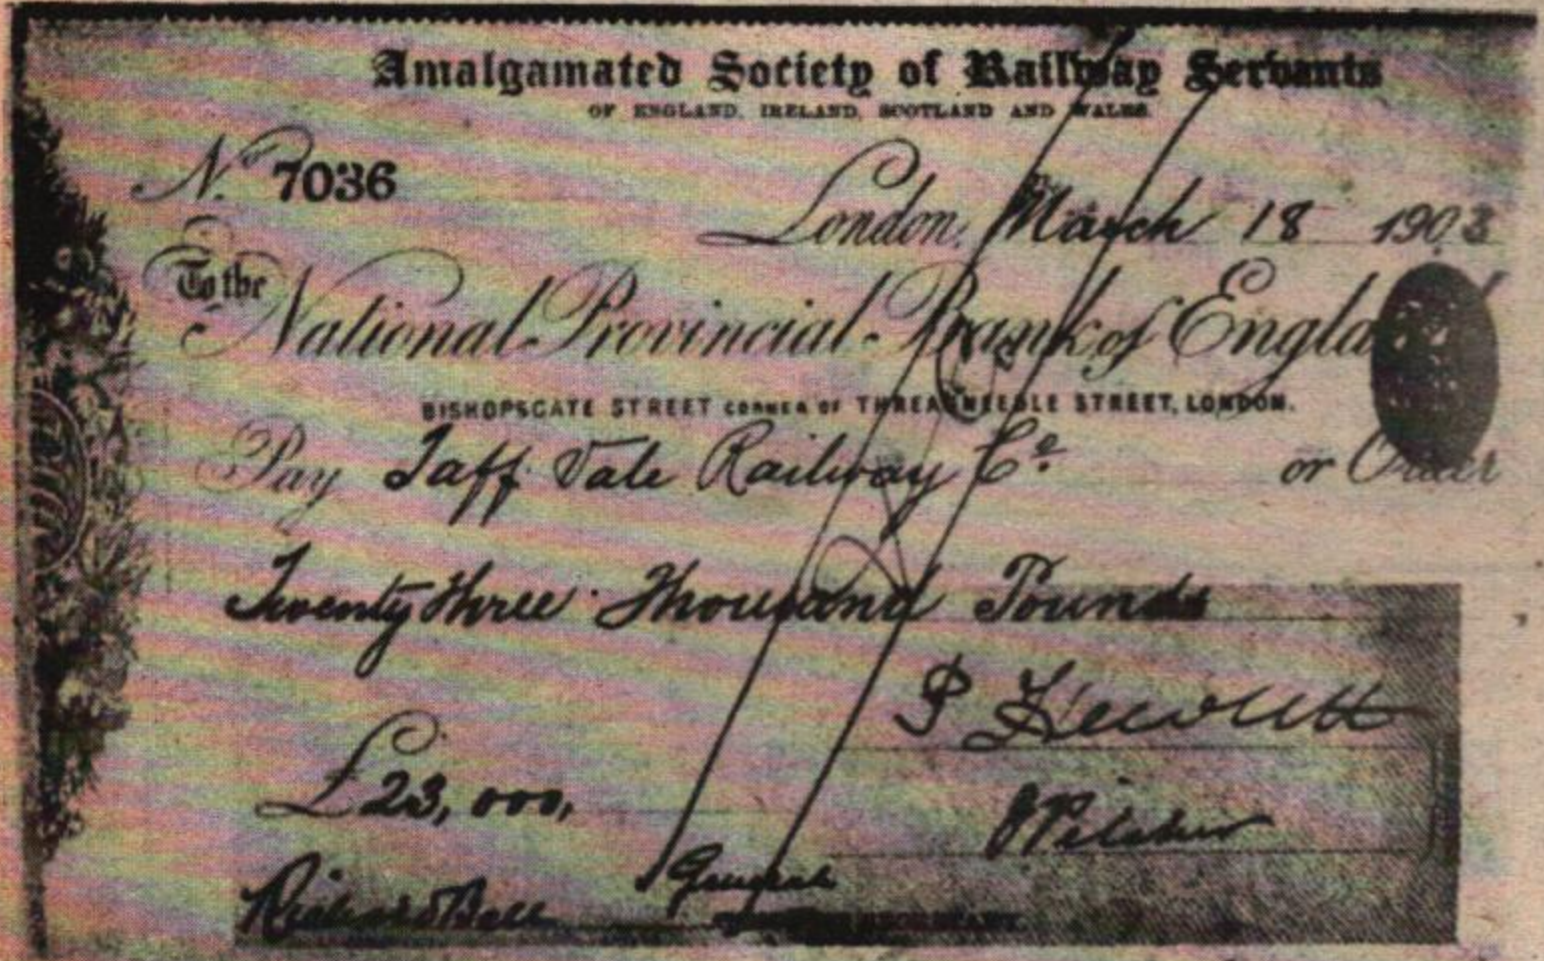 Amalgamated Society of Railway Servants
OF ENGLAND, IRELAND, SCOTLAND AND WALES.
No 7036
London, March 18 1903
To the National Provincial Bank of England
BISHOPSGATE STREET CORNER OF THREADNEEDLE STREET, LONDON.
Pay Taff Vale Railway Co. or Order
Twenty three Thousand Pounds
P Hewlett
£23,000,
J Pilcher
Richard Bell General SECRETARY